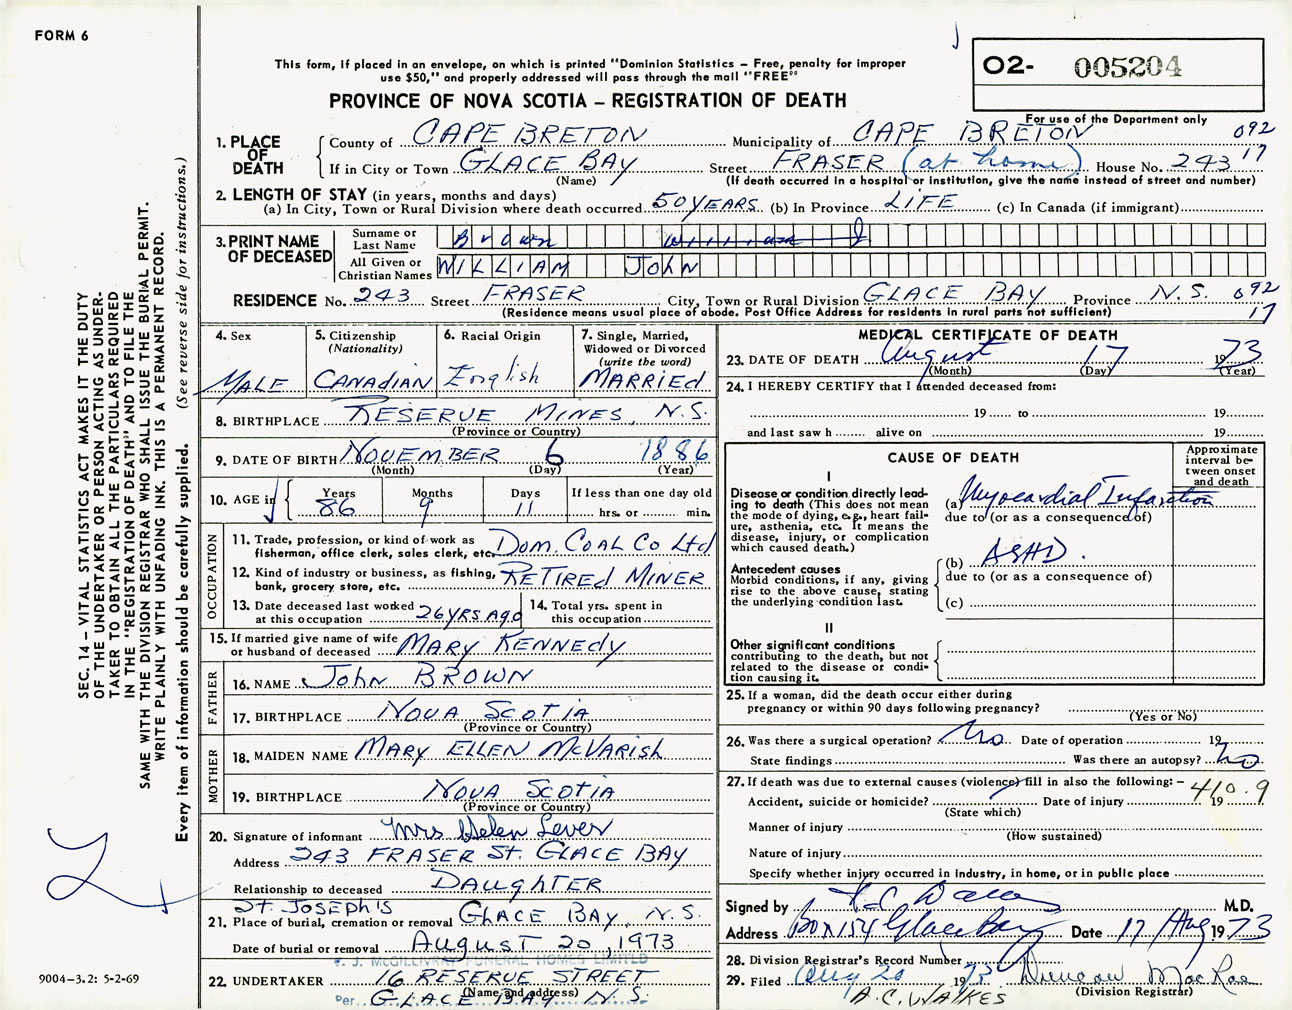 FORM 6
This form, if placed in an envelope, on which is printed "Dominion Statistics – Free, penalty for improper
use $50," and properly addressed will pass through the mail "FREE"
PROVINCE OF NOVA SCOTIA – REGISTRATION OF DEATH
O2- 005204
For use of the Department only
092
17
1. PLACE OF DEATH County of CAPE BRETON Municipality of CAPE BRETON
If in City or Town GLACE BAY Street FRASER (at home) House No. 243
(Name) (If death occurred in a hospital or institution, give the name instead of street and number)
2. LENGTH OF STAY (in years, months and days)
(a) In City, Town or Rural Division where death occurred 50 YEARS (b) In Province LIFE (c) In Canada (if immigrant)
3. PRINT NAME OF DECEASED
Surname or Last Name Brown William J
All Given or Christian Names WILLIAM JOHN
RESIDENCE No. 243 Street FRASER City, Town or Rural Division GLACE BAY Province N.S. 092
(Residence means usual place of abode. Post Office Address for residents in rural parts not sufficient) 17
4. Sex MALE
5. Citizenship (Nationality) CANADIAN
6. Racial Origin English
7. Single, Married, Widowed or Divorced (write the word) MARRIED
8. BIRTHPLACE RESERVE MINES, N.S.
(Province or Country)
9. DATE OF BIRTH NOVEMBER 6 1886
(Month) (Day) (Year)
10. AGE in Years 86 Months 9 Days 11 If less than one day old
hrs. or min.
OCCUPATION
11. Trade, profession, or kind of work as fisherman, office clerk, sales clerk, etc. DOM. COAL CO Ltd
12. Kind of industry or business, as fishing, bank, grocery store, etc. RETIRED MINER
13. Date deceased last worked at this occupation 26 YRS AGO
14. Total yrs. spent in this occupation
15. If married give name of wife or husband of deceased MARY KENNEDY
FATHER
16. NAME John BROWN
17. BIRTHPLACE NOVA SCOTIA
(Province or Country)
MOTHER
18. MAIDEN NAME MARY ELLEN McVARISH
19. BIRTHPLACE NOVA SCOTIA
(Province or Country)
20. Signature of informant Mrs Helen Lever
Address 243 FRASER St. GLACE BAY
Relationship to deceased DAUGHTER
St. JOSEPH'S
21. Place of burial, cremation or removal GLACE BAY, N.S.
Date of burial or removal AUGUST 20, 1973
V. J. McGILLIVRAY FUNERAL HOMES LIMITED
22. UNDERTAKER 16 RESERVE STREET
(Name and address)
Per GLACE BAY N.S.
MEDICAL CERTIFICATE OF DEATH
23. DATE OF DEATH August 17 1973
(Month) (Day) (Year)
24. I HEREBY CERTIFY that I attended deceased from:
19 to 19
and last saw h alive on 19
CAUSE OF DEATH
Approximate interval between onset and death
I
Disease or condition directly leading to death (This does not mean the mode of dying, e.g., heart failure, asthenia, etc. It means the disease, injury, or complication which caused death.)
(a) Myocardial Infarction
due to (or as a consequence of)
Antecedent causes
Morbid conditions, if any, giving rise to the above cause, stating the underlying condition last.
(b) ASHD.
due to (or as a consequence of)
(c)
II
Other significant conditions
contributing to the death, but not related to the disease or condition causing it.
25. If a woman, did the death occur either during
pregnancy or within 90 days following pregnancy?
(Yes or No)
26. Was there a surgical operation? No Date of operation 19
State findings Was there an autopsy? no
27. If death was due to external causes (violence) fill in also the following: –
410.9
Accident, suicide or homicide? Date of injury 19
(State which)
Manner of injury
(How sustained)
Nature of injury
Specify whether injury occurred in industry, in home, or in public place
Signed by M.D.
Address Box 154 Glace Bay Date 17 Aug 1973
28. Division Registrar's Record Number
29. Filed Aug 20 1973 Duncan MacRae
(Division Registrar)
A.C. WALKES
SEC. 14 – VITAL STATISTICS ACT MAKES IT THE DUTY
OF THE UNDERTAKER OR PERSON ACTING AS UNDER-
TAKER TO OBTAIN ALL THE PARTICULARS REQUIRED
IN THE "REGISTRATION OF DEATH" AND TO FILE THE
SAME WITH THE DIVISION REGISTRAR WHO SHALL ISSUE THE BURIAL PERMIT.
WRITE PLAINLY WITH UNFADING INK. THIS IS A PERMANENT RECORD.
Every item of information should be carefully supplied. (See reverse side for instructions.)
9004–3.2: 5-2-69